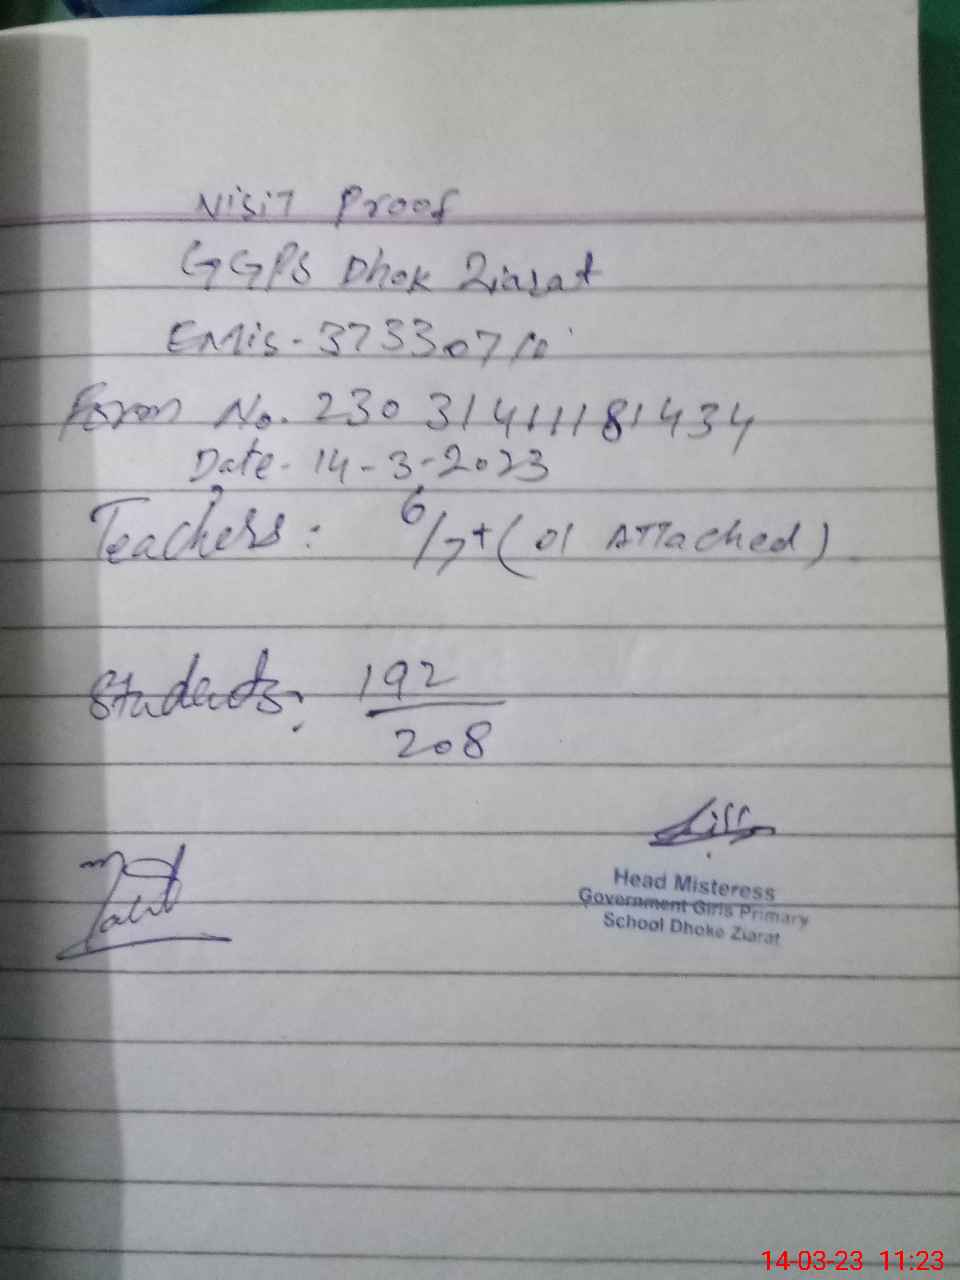 Visit Proof
GGPS Dhok Ziarat
EMIS - 37330710
Form No. 230314111181434
Date - 14-3-2023
Teachers: 6/7 + (01 Attached)
Students: 192
208
Head Misteress
Government Girls Primary
School Dhoke Ziarat
14-03-23 11:23